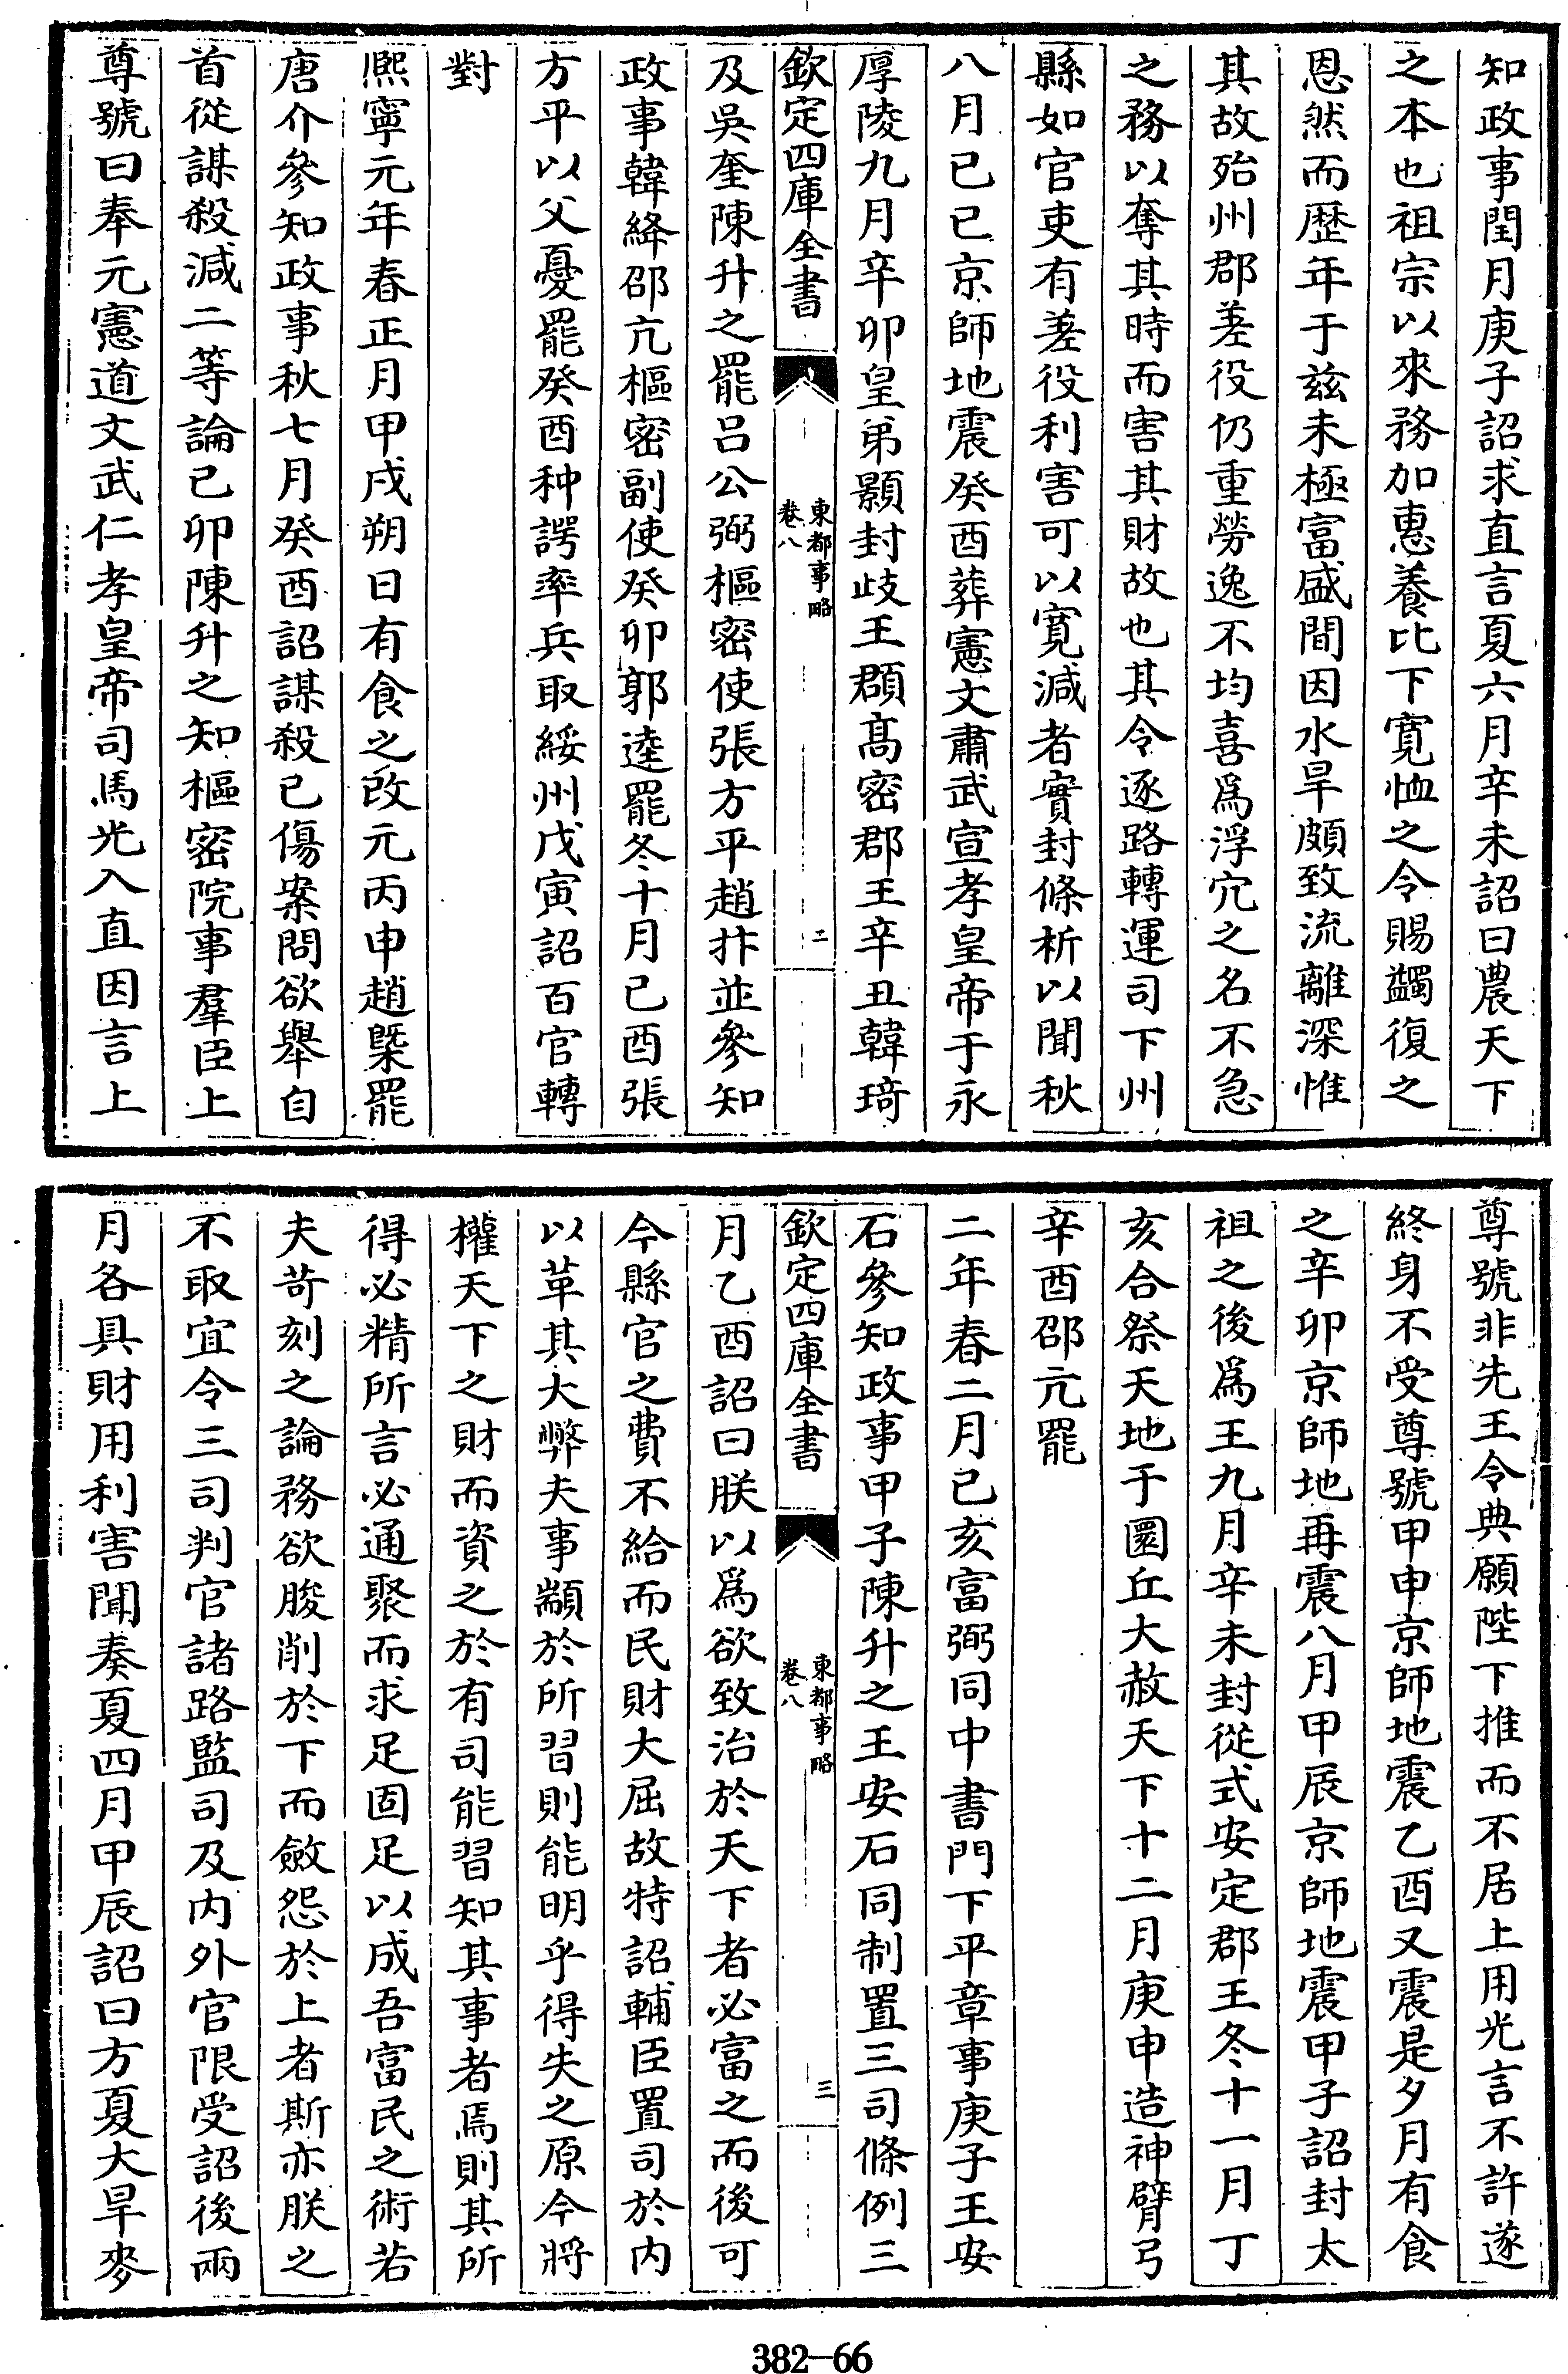 知政事閏月庚子詔求直言夏六月辛未詔曰農天下
之本也祖宗以來務加惠養比下寛恤之令賜蠲復之
恩然而歴年于兹未極富盛間因水旱頗致流離深惟
其故殆州郡差役仍重勞逸不均喜爲浮冗之名不急
之務以奪其時而害其財故也其令逐路轉運司下州
縣如官吏有差役利害可以寛減者實封條析以聞秋
八月已巳京師地震癸酉葬憲文肅武宣孝皇帝于永
厚陵九月辛卯皇弟顥封歧王頵髙密郡王辛丑韓琦
欽定四庫全書
東都事略
卷八
二
及吳奎陳升之罷吕公弼樞密使張方平趙抃並參知
政事韓絳邵亢樞密副使癸卯郭逵罷冬十月已酉張
方平以父憂罷癸酉种諤率兵取綏州戊寅詔百官轉
對
熙寧元年春正月甲戌朔日有食之改元丙申趙槩罷
唐介參知政事秋七月癸酉詔謀殺已傷案問欲舉自
首從謀殺減二等論已卯陳升之知樞密院事羣臣上
尊號曰奉元憲道文武仁孝皇帝司馬光入直因言上
尊號非先王令典願陛下推而不居上用光言不許遂
終身不受尊號甲申京師地震乙酉又震是夕月有食
之辛卯京師地再震八月甲辰京師地震甲子詔封太
祖之後爲王九月辛未封從式安定郡王冬十一月丁
亥合祭天地于圜丘大赦天下十二月庚申造神臂弓
辛酉邵亢罷
二年春二月已亥富弼同中書門下平章事庚子王安
石參知政事甲子陳升之王安石同制置三司條例三
欽定四庫全書
東都事略
卷八
三
月乙酉詔曰朕以爲欲致治於天下者必富之而後可
今縣官之費不給而民財大屈故特詔輔臣置司於内
以革其大弊夫事顓於所習則能明乎得失之原今將
權天下之財而資之於有司能習知其事者焉則其所
得必精所言必通聚而求足固足以成吾富民之術若
夫苛刻之論務欲朘削於下而斂怨於上者斯亦朕之
不取宜令三司判官諸路監司及内外官限受詔後兩
月各具財用利害聞奏夏四月甲辰詔曰方夏大旱麥
382-66